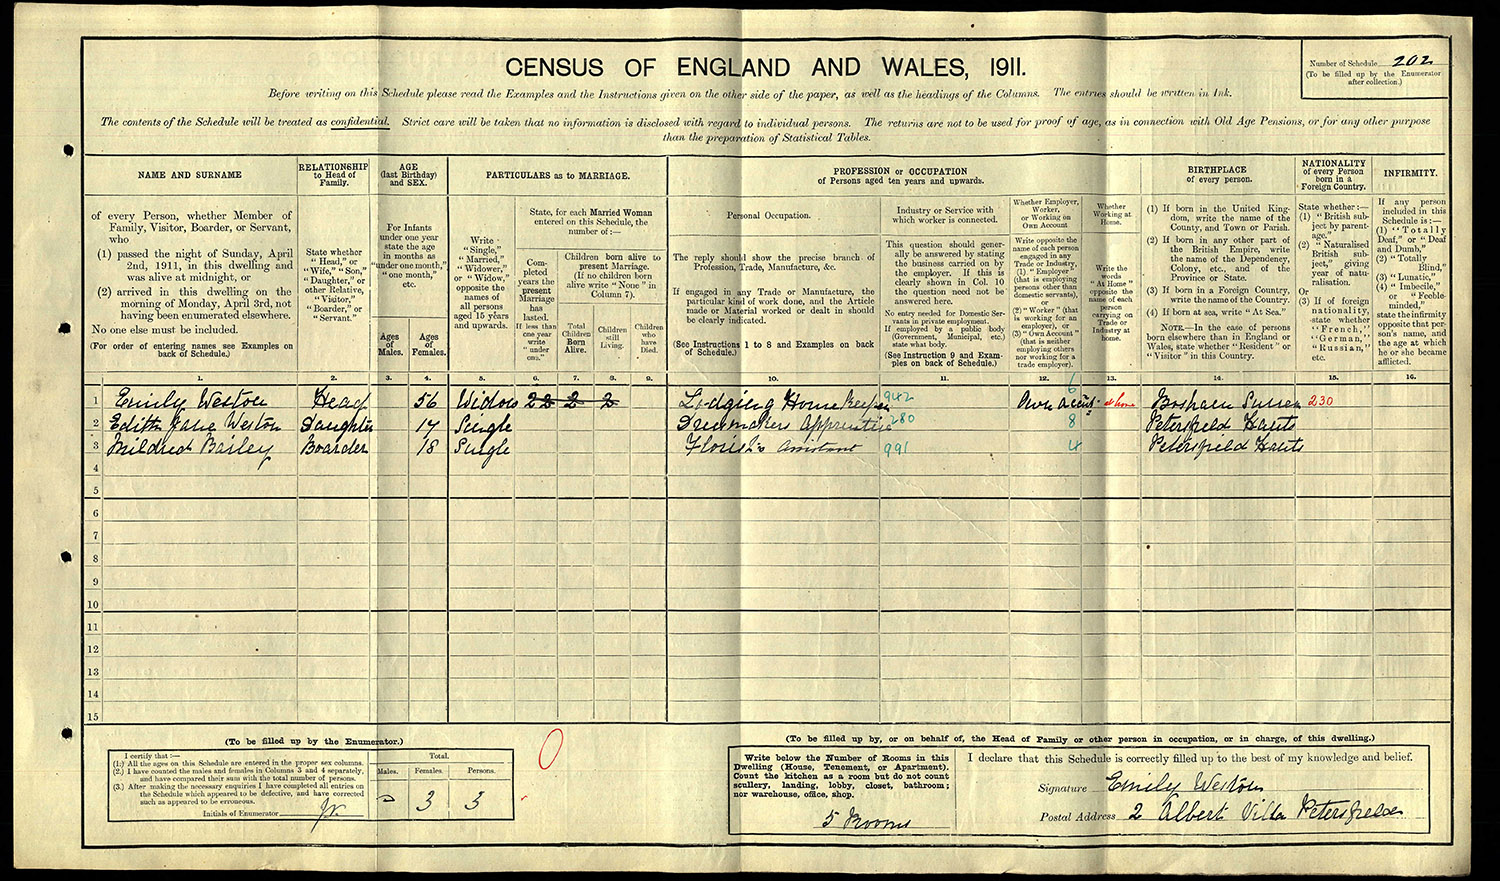 CENSUS OF ENGLAND AND WALES, 1911.
Number of Schedule 202
(To be filled up by the Enumerator
after collection.)
Before writing on this Schedule please read the Examples and the Instructions given on the other side of the paper, as well as the headings of the Columns. The entries should be written in Ink.
The contents of the Schedule will be treated as confidential. Strict care will be taken that no information is disclosed with regard to individual persons. The returns are not to be used for proof of age, as in connection with Old Age Pensions, or for any other purpose
than the preparation of Statistical Tables.
NAME AND SURNAME
of every Person, whether Member of
Family, Visitor, Boarder, or Servant,
who
(1) passed the night of Sunday, April
2nd, 1911, in this dwelling and
was alive at midnight, or
(2) arrived in this dwelling on the
morning of Monday, April 3rd, not
having been enumerated elsewhere.
No one else must be included.
(For order of entering names see Examples on
back of Schedule.)
RELATIONSHIP
to Head of
Family.
State whether
"Head," or
"Wife," "Son,"
"Daughter," or
other Relative,
"Visitor,"
"Boarder," or
"Servant."
AGE
(last Birthday)
and SEX.
For Infants
under one year
state the age
in months as
"under one month,"
"one month,"
etc.
Ages
of
Males.
Ages
of
Females.
PARTICULARS as to MARRIAGE.
Write
"Single,"
"Married,"
"Widower,"
or "Widow,"
opposite the
names of
all persons
aged 15 years
and upwards.
State, for each Married Woman
entered on this Schedule, the
number of:—
Com-
pleted
years the
present
Marriage
has
lasted.
If less than
one year
write
"under
one."
Children born alive to
present Marriage.
(If no children born
alive write "None" in
Column 7).
Total
Children
Born
Alive.
Children
still
Living.
Children
who
have
Died.
PROFESSION or OCCUPATION
of Persons aged ten years and upwards.
Personal Occupation.
The reply should show the precise branch of
Profession, Trade, Manufacture, &c.
If engaged in any Trade or Manufacture, the
particular kind of work done, and the Article
made or Material worked or dealt in should
be clearly indicated.
(See Instructions 1 to 8 and Examples on back
of Schedule.)
Industry or Service with
which worker is connected.
This question should gener-
ally be answered by stating
the business carried on by
the employer. If this is
clearly shown in Col. 10
the question need not be
answered here.
No entry needed for Domestic Ser-
vants in private employment.
If employed by a public body
(Government, Municipal, etc.)
state what body.
(See Instruction 9 and Exam-
ples on back of Schedule.)
Whether Employer,
Worker,
or Working on
Own Account
Write opposite the
name of each person
engaged in any
Trade or Industry,
(1) "Employer"
(that is employing
persons other than
domestic servants),
or
(2) "Worker" (that
is working for an
employer), or
(3) "Own Account"
(that is neither
employing others
nor working for a
trade employer).
Whether
Working at
Home.
Write the
words
"At Home"
opposite the
name of each
person
carrying on
Trade or
Industry at
home.
BIRTHPLACE
of every person.
(1) If born in the United King-
dom, write the name of the
County, and Town or Parish.
(2) If born in any other part of
the British Empire, write
the name of the Dependency,
Colony, etc., and of the
Province or State.
(3) If born in a Foreign Country,
write the name of the Country.
(4) If born at sea, write "At Sea."
NOTE.—In the case of persons
born elsewhere than in England or
Wales, state whether "Resident" or
"Visitor" in this Country.
NATIONALITY
of every Person
born in a
Foreign Country.
State whether:—
(1) "British sub-
ject by parent-
age."
(2) "Naturalised
British sub-
ject," giving
year of natu-
ralisation.
Or
(3) If of foreign
nationality,
state whether
"French,"
"German,"
"Russian,"
etc.
INFIRMITY.
If any person
included in this
Schedule is:—
(1) "Totally
Deaf," or "Deaf
and Dumb,"
(2) "Totally
Blind,"
(3) "Lunatic,"
(4) "Imbecile,"
or "Feeble-
minded,"
state the infirmity
opposite that per-
son's name, and
the age at which
he or she became
afflicted.
1. 2. 3. 4. 5. 6. 7. 8. 9. 10. 11. 12. 13. 14. 15. 16.
1 Emily Weston Head 56 Widow 22 2 2 Lodging House Keeper 942 Own account 6 at home Bosham Sussex 230
2 Edith Jane Weston Daughter 17 Single Dressmakers Apprentice 280 8 Petersfield Hants
3 Mildred Bailey Boarder 18 Single Florists assistant 991 4 Petersfield Hants
4
5
6
7
8
9
10
11
12
13
14
15
(To be filled up by the Enumerator.)
I certify that:—
(1.) All the ages on this Schedule are entered in the proper sex columns.
(2.) I have counted the males and females in Columns 3 and 4 separately,
and have compared their sum with the total number of persons.
(3.) After making the necessary enquiries I have completed all entries on
the Schedule which appeared to be defective, and have corrected
such as appeared to be erroneous.
Initials of Enumerator
Total.
Males. Females. Persons.
3 3
(To be filled up by, or on behalf of, the Head of Family or other person in occupation, or in charge, of this dwelling.)
Write below the Number of Rooms in this
Dwelling (House, Tenement, or Apartment).
Count the kitchen as a room but do not count
scullery, landing, lobby, closet, bathroom;
nor warehouse, office, shop.
5 Rooms
I declare that this Schedule is correctly filled up to the best of my knowledge and belief.
Signature Emily Weston
Postal Address 2 Albert Villa Petersfield